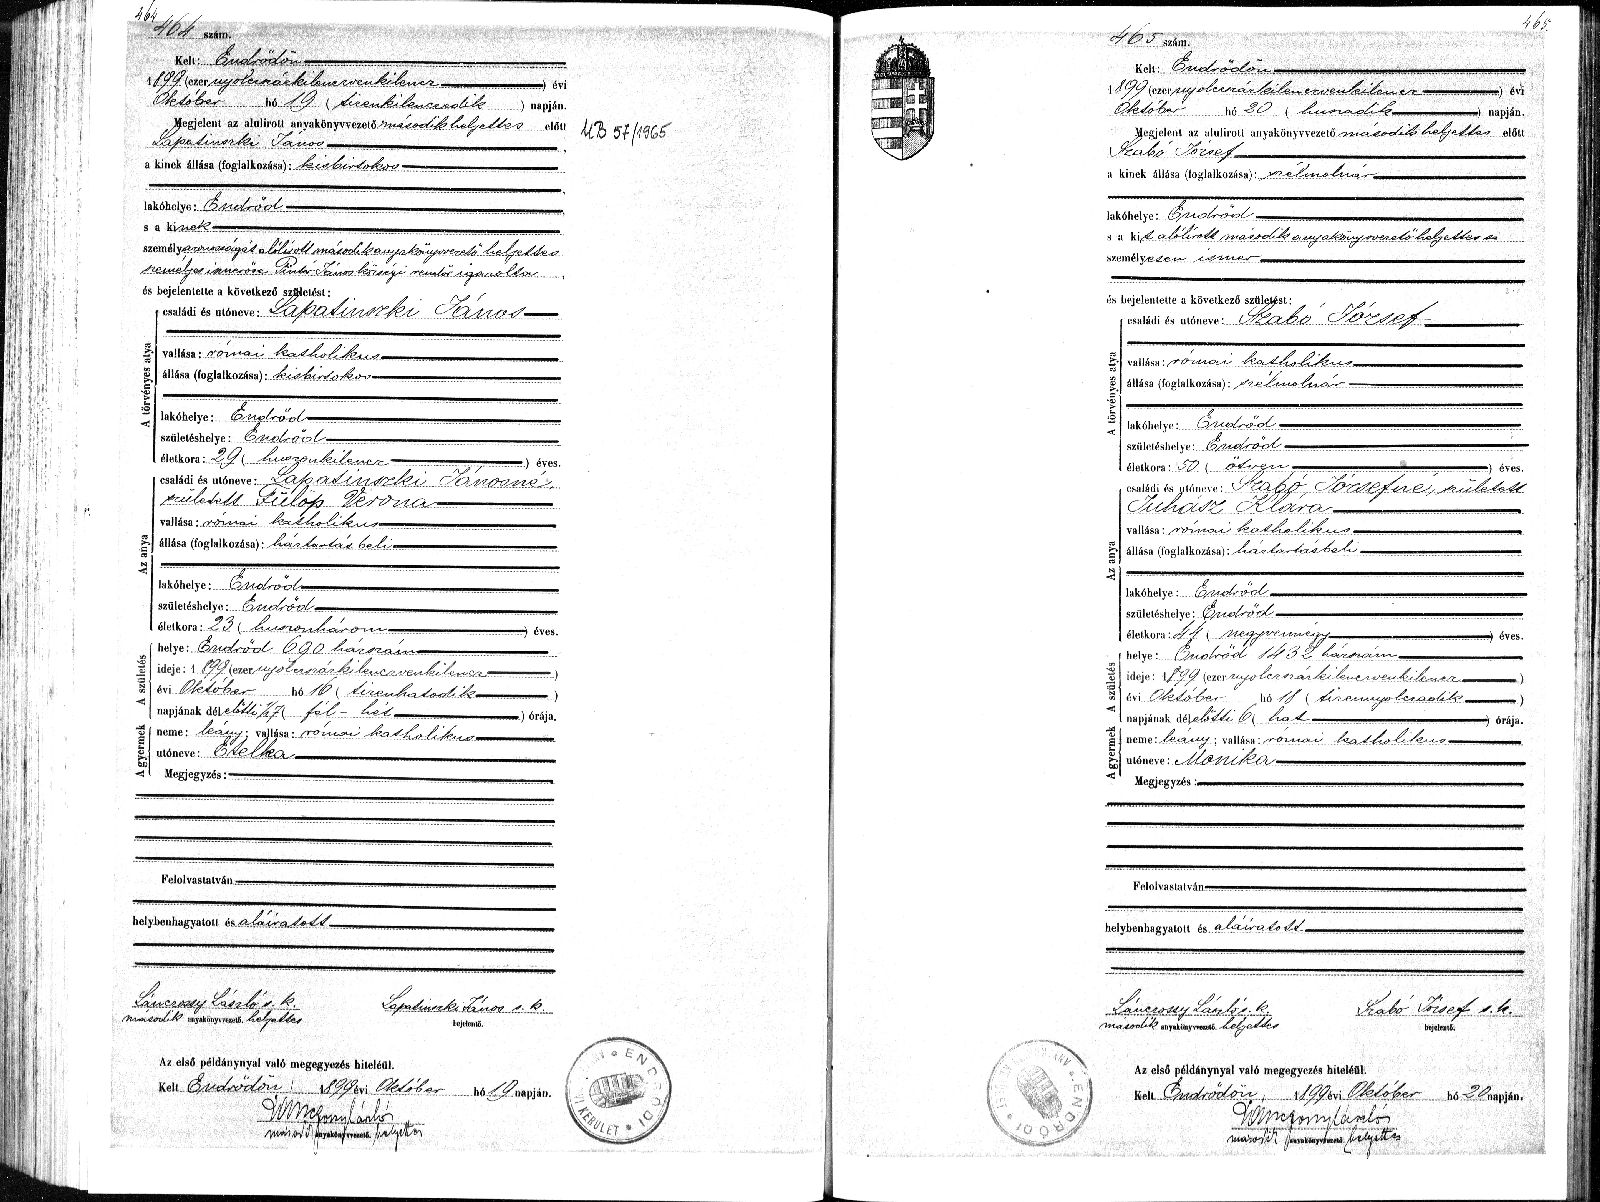 464
464 szám.
Kelt: Endrődön
1899 (ezer nyolczszázkilenczvenkilencz) évi
Október hó 19 (tizenkilenczedik) napján.
Megjelent az alulirott anyakönyvvezető második helyettes előtt
Lapatinszki János
a kinek állása (foglalkozása): kisbirtokos
lakóhelye: Endrőd
s a kinek
személyazonosságát alólirott második anyakönyvvezető helyettes
személyes ismerőse Pintér János községi rendőr igazolta
és bejelentette a következő születést:
A törvényes atya
családi és utóneve: Lapatinszki János
vallása: római katholikus
állása (foglalkozása): kisbirtokos
lakóhelye: Endrőd
születéshelye: Endrőd
életkora: 29 (huszonkilencz) éves.
Az anya
családi és utóneve: Lapatinszki Jánosné,
született Fülöp Verona
vallása: római katholikus
állása (foglalkozása): háztartásbeli
lakóhelye: Endrőd
születéshelye: Endrőd
életkora: 23 (huszonhárom) éves.
A születés
helye: Endrőd 690 házszám
ideje: 1899 (ezer nyolczszázkilenczvenkilencz)
évi Október hó 16 (tizenhatodik)
napjának délelőtti 1/2 7 (fél-hét) órája.
A gyermek
neme: leány; vallása: római katholikus
utóneve: Etelka
Megjegyzés:
Felolvastatván
helybenhagyatott és aláiratott
Lánczossy László s. k. Lapatinszki János s. k.
második anyakönyvvezető. helyettes bejelentő.
Az első példánynyal való megegyezés hiteléül.
Kelt Endrődön, 1899 évi Október hó 19 napján.
második anyakönyvvezető. helyettes
ENDRŐDI
VI. KERÜLET
HB 57/1965
465
465 szám.
Kelt: Endrődön
1899 (ezer nyolczszázkilenczvenkilencz) évi
Október hó 20 (huszadik) napján.
Megjelent az alulirott anyakönyvvezető második helyettes előtt
Szabó József
a kinek állása (foglalkozása): szélmolnár
lakóhelye: Endrőd
s a kit alólirott második anyakönyvvezető helyettes
személyesen ismer
és bejelentette a következő születést:
A törvényes atya
családi és utóneve: Szabó József
vallása: római katholikus
állása (foglalkozása): szélmolnár
lakóhelye: Endrőd
születéshelye: Endrőd
életkora: 50 (ötven) éves.
Az anya
családi és utóneve: Szabó Józsefné, született
Juhász Klára
vallása: római katholikus
állása (foglalkozása): háztartásbeli
lakóhelye: Endrőd
születéshelye: Endrőd
életkora: 44 (negyvennégy) éves.
A születés
helye: Endrőd 1432 házszám
ideje: 1899 (ezer nyolczszázkilenczvenkilencz)
évi Október hó 18 (tizennyolczadik)
napjának délelőtti 6 (hat) órája.
A gyermek
neme: leány; vallása: római katholikus
utóneve: Mónika
Megjegyzés:
Felolvastatván
helybenhagyatott és aláiratott
Lánczossy László s. k. Szabó József s. k.
második anyakönyvvezető. helyettes bejelentő.
Az első példánynyal való megegyezés hiteléül.
Kelt Endrődön, 1899 évi Október hó 20 napján.
második anyakönyvvezető. helyettes
ENDRŐDI